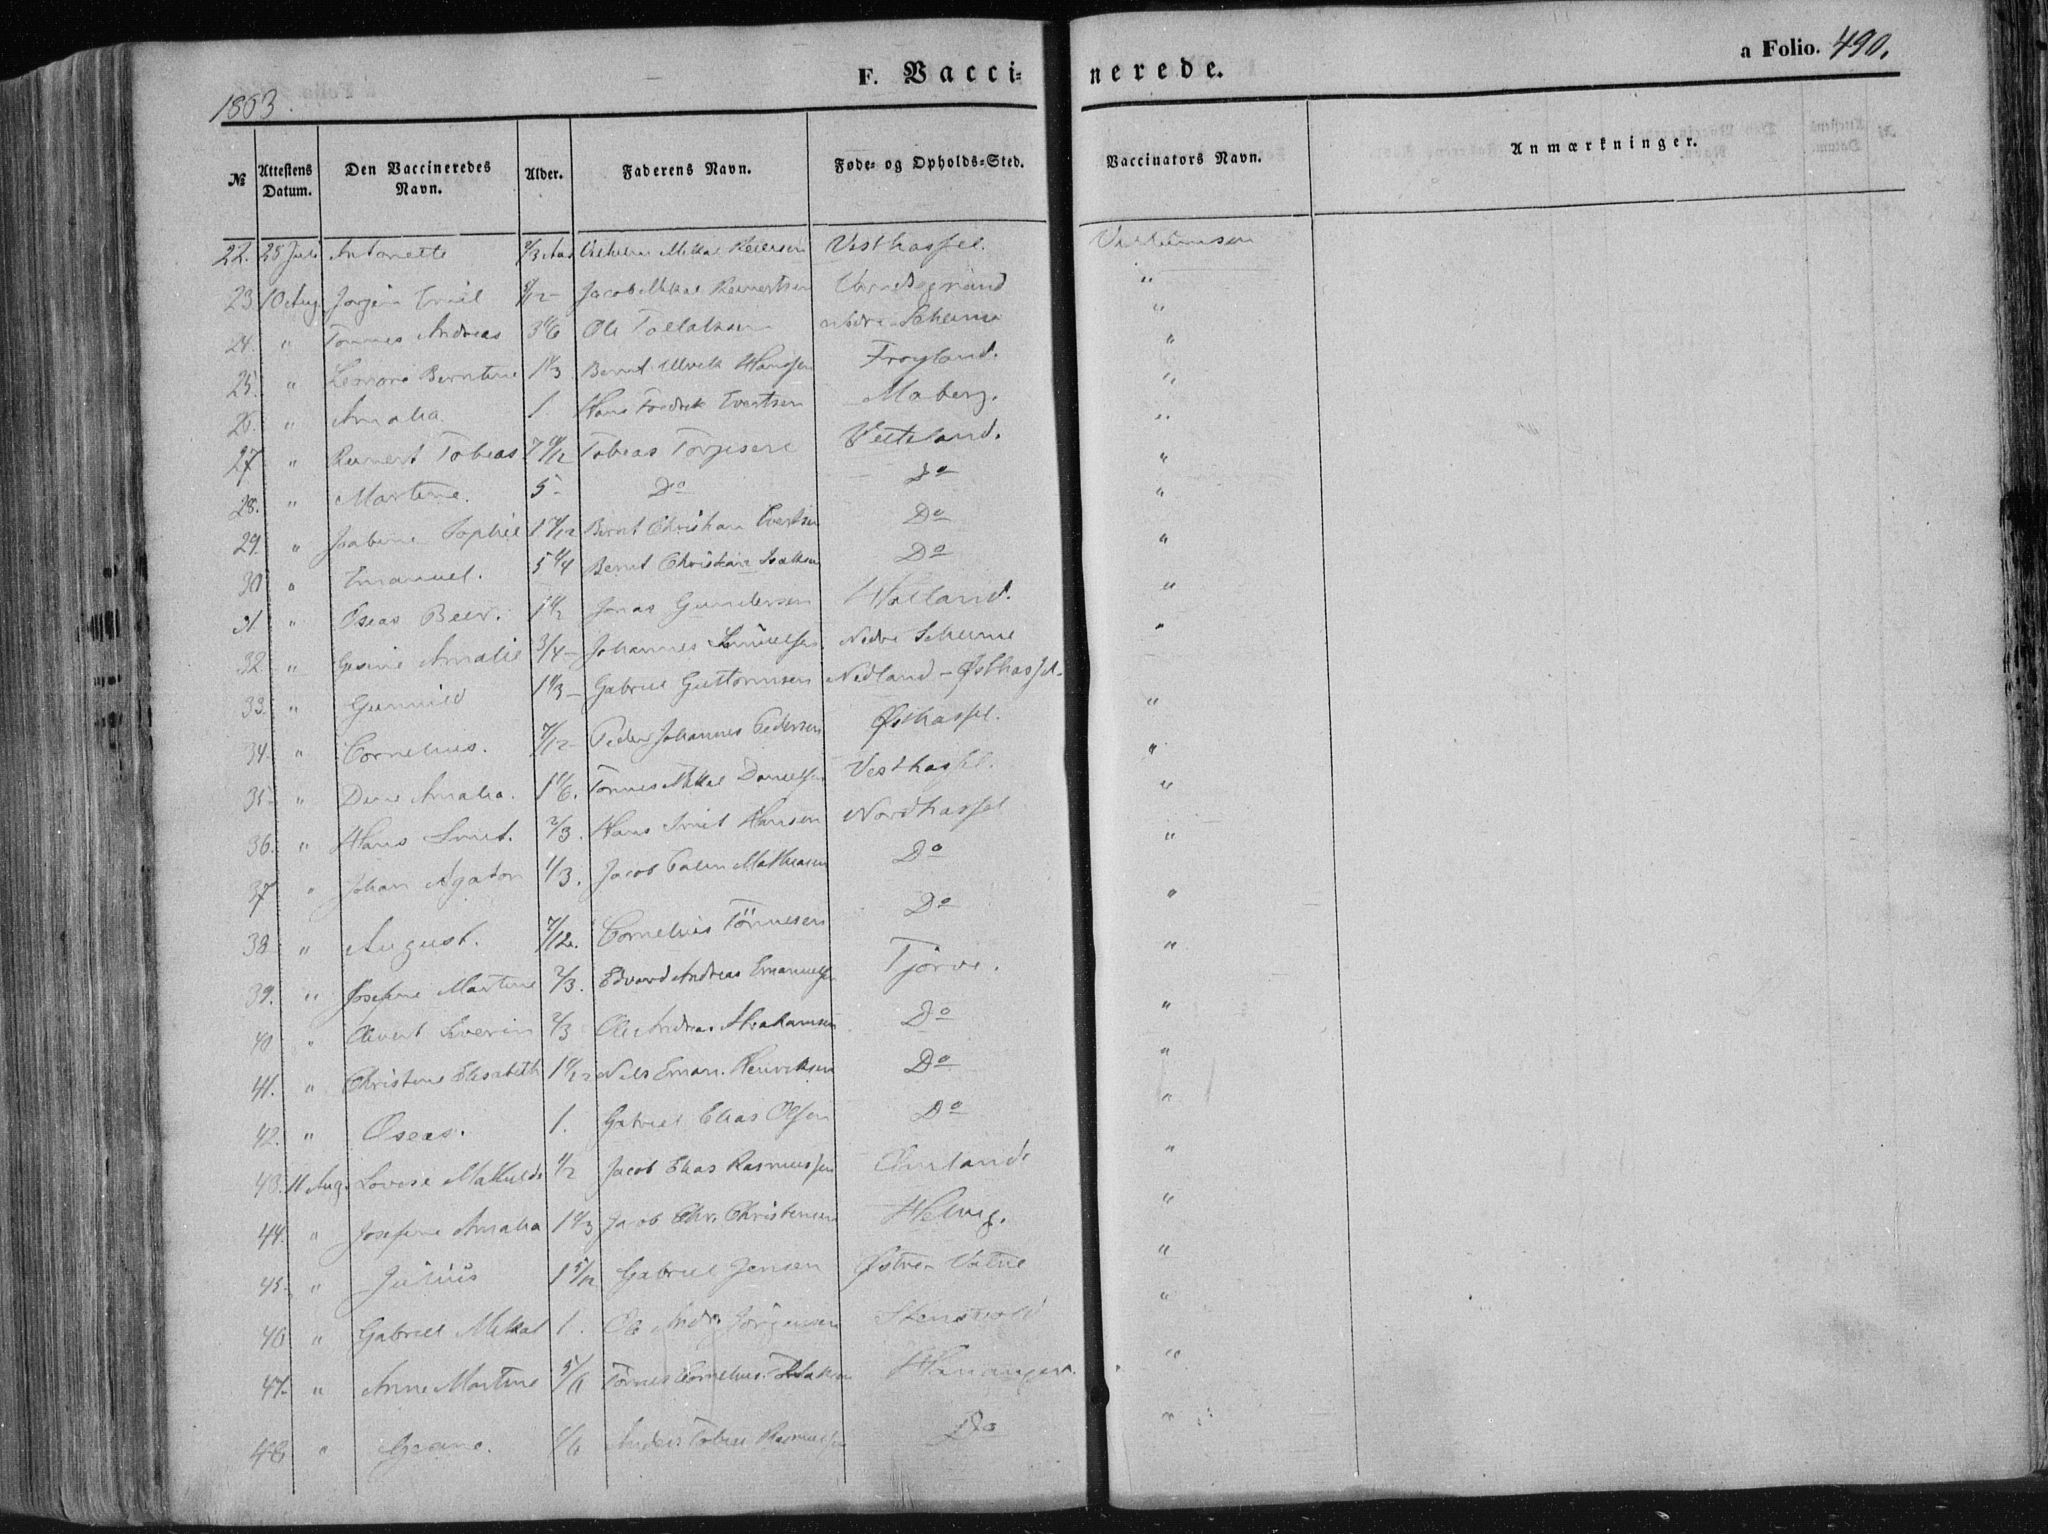 F. Vaccinerede.
a Folio. 490.
1863.
№ Attestens Datum. Den Vaccineredes Navn. Alder. Faderens Navn. Føde- og Opholds-Sted. Vaccinators Navn. Anmærkninger.
22. 28 Juli Antonette 2/3 Aar Vilhelm Mikal Reiersen Vesthassel.
23. 10 Aug. Jørgen Emil 5/12 - Jacob Mikal Reinertsen "
24. " Tønnes Andreas 3 1/6 Ole Tollaksen Scheime "
25. " Leonore Berntine 1 1/3 Bernt Ulvik Hanssen Frøyland. "
26. " Amalia 1. Hans Fredrik Evertsen Maberg. "
27 " Reinert Tobias 7 Tobias Torjesen Vetteland. "
28. " Martine. 5 - Do Do "
29. " Sophie 1 Bernt Christian Evertsen Do "
30 " Emanuel. 5 1/4 Bernt Christian Isaksen Do "
31 " Oseas Beer. 1 1/2 Jonas Gundersen "
32 " Gesine Amalie 3/4 - Johannes Samuelsen Nedre Scheime "
33. " Gunnild 1 1/3 - Gabriel Guttormsen Nedland - Østhassel. "
34. " Cornelius. 7/12 - Peder Johannes Pedersen Østhassel. "
35 " Amalia. 1 1/6. Tønnes Mikal Danielsen Vesthassel. "
36. " Hans Smit. 2/3. Hans Smit Hansen Nordhassel "
37 " Johan Agaton 1/3. Jacob Palm Mathiasen Do "
38 " August. 7/12. Cornelius Tönnesen Do "
39. " Josefine Martine 2/3. Edvard Andreas Emanuelsen Tjørve. "
40 " Severin 2/3 Ole Andreas Abrahamsen Do "
41. " Christine Elisabeth 1 Niels Eman. Henriksen Do "
42. " Oseas. 1. Gabriel Elias Olsen Do "
43. 11 Aug. Lovise Mathilde 1/2 Jacob Elias Rasmussen "
44. " Josefine Amalia 1 1/3 Jacob Chr. Christensen Helvig. "
45 " Julius 1 5/12 Gabriel Jensen Østre Vatne "
46 " Gabriel Mikal 1. Ole Andr. Jörgensen "
47. " Anne Martine 5/6 Tönnes Cornelius "
48 " 1/6 Anders Tobias Rasmussen Do "